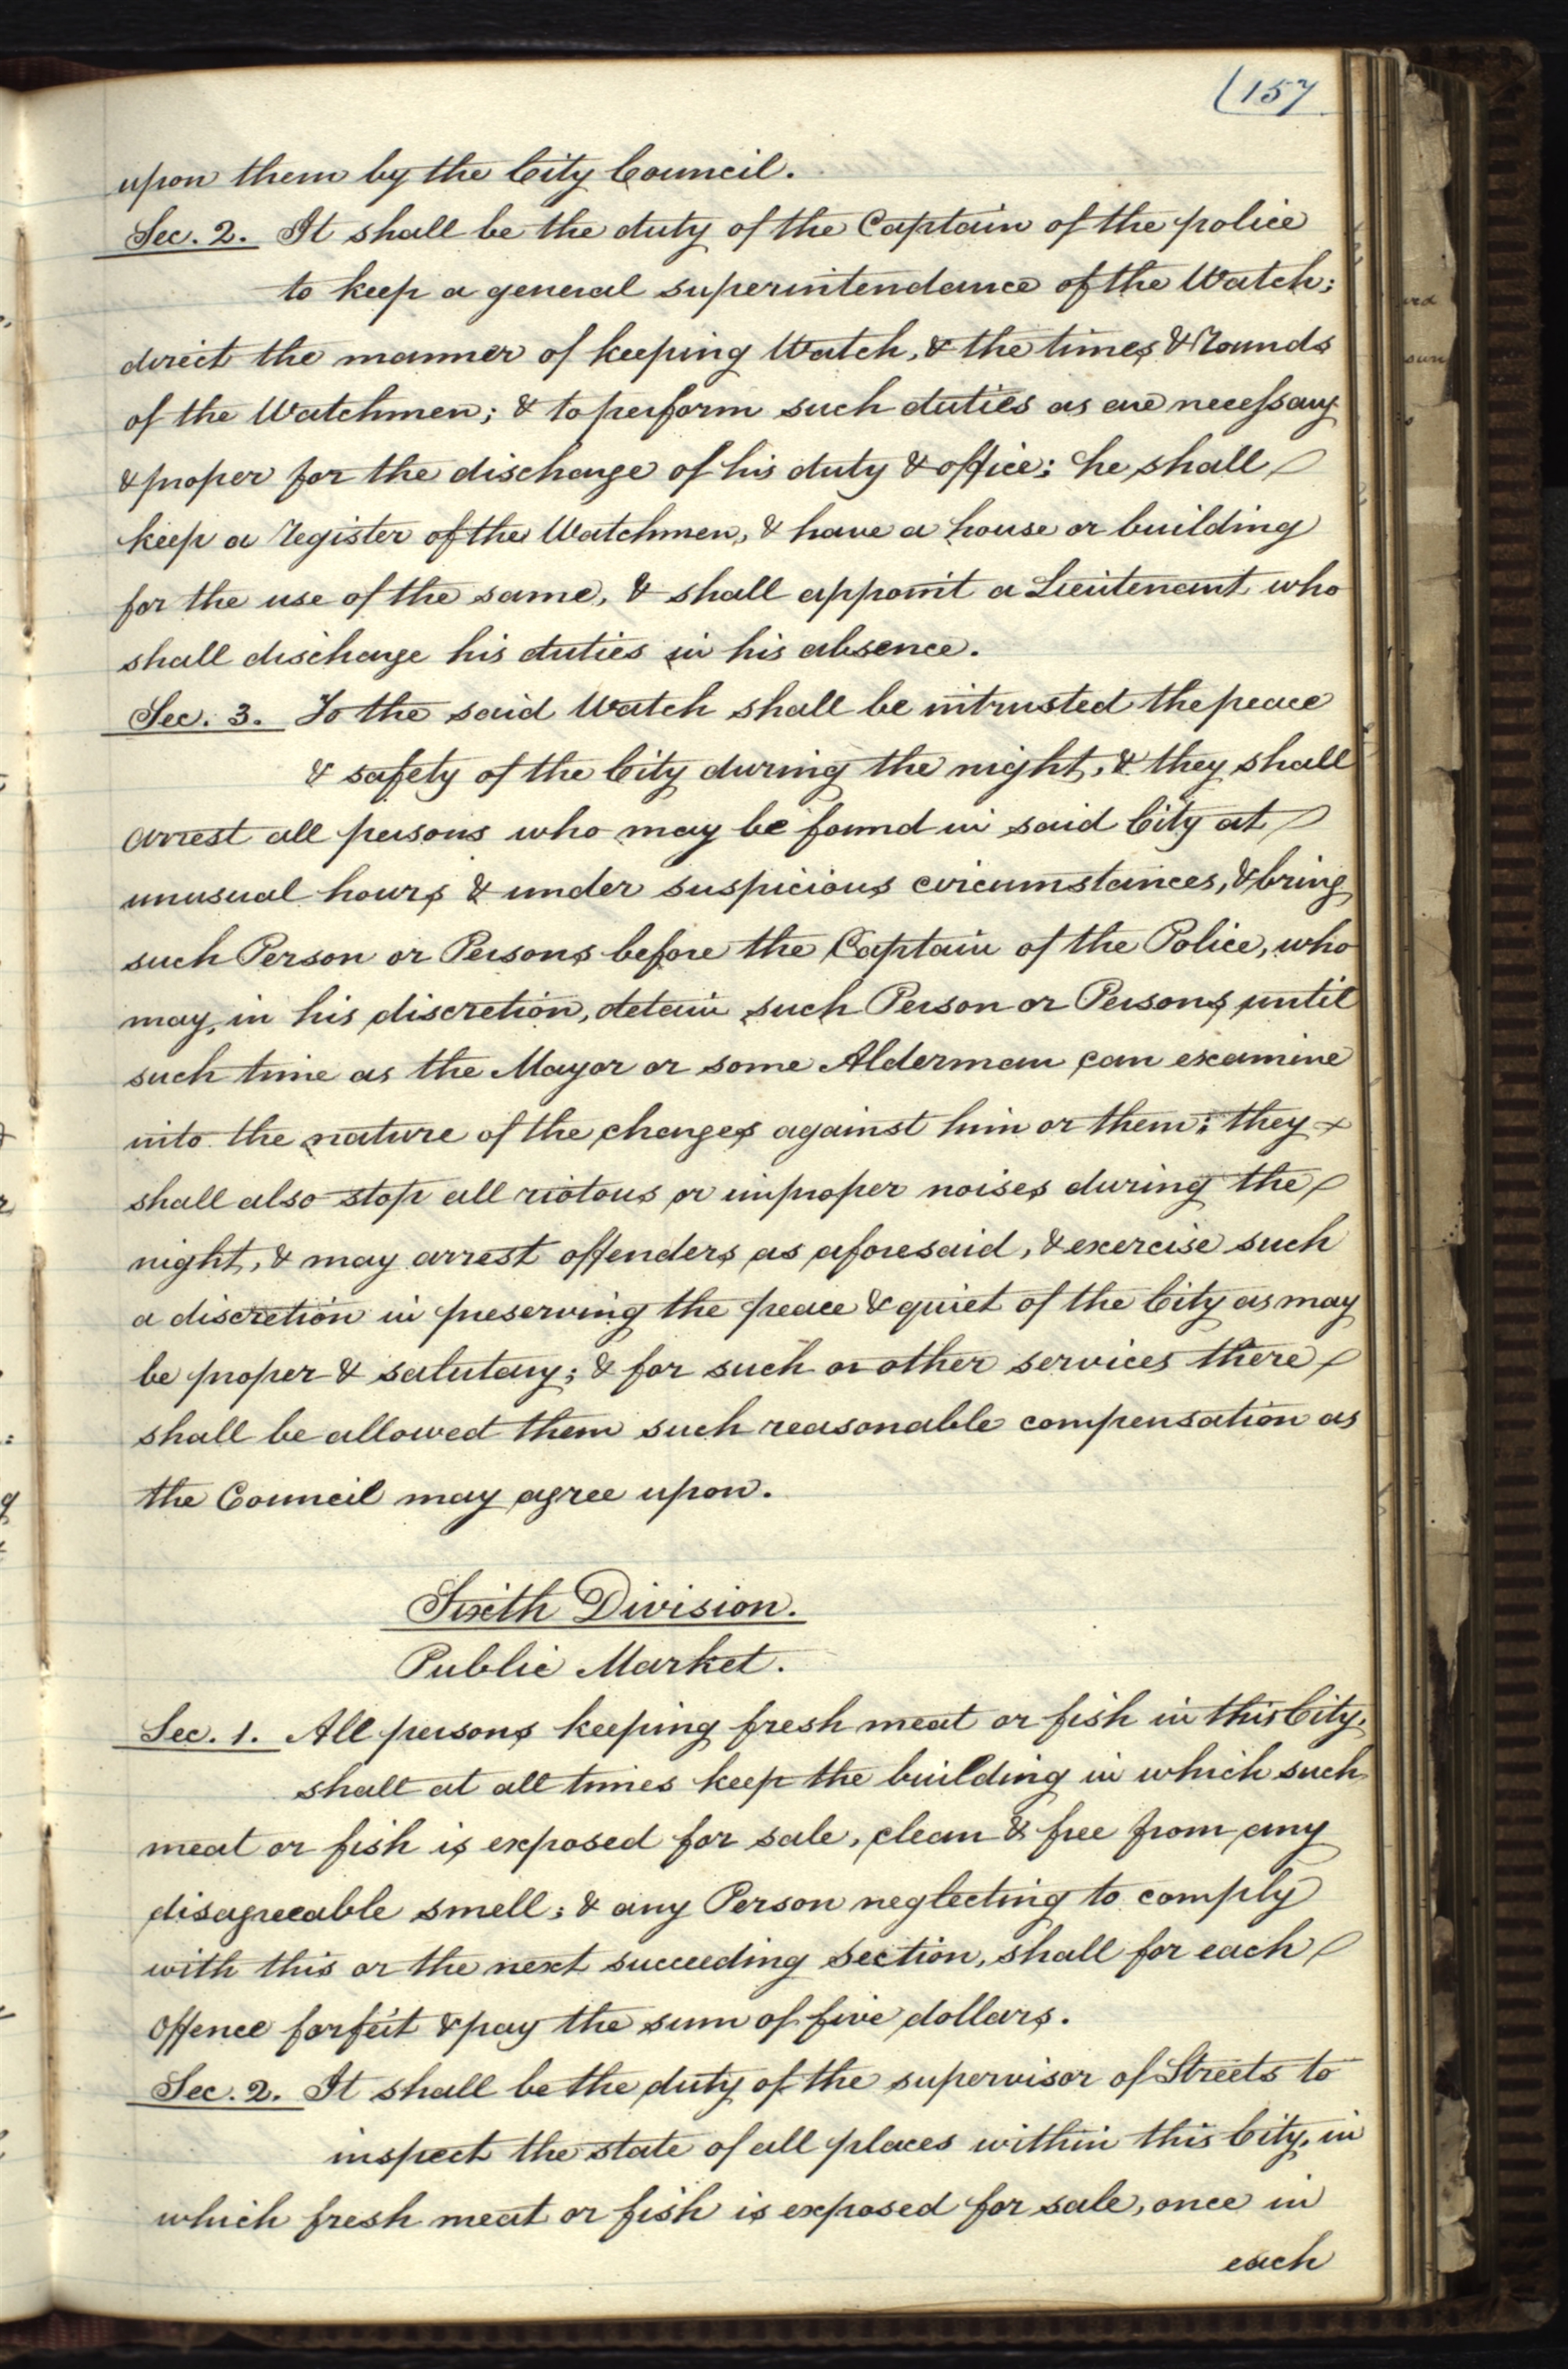 (157
upon them by the City Council.
Sec. 2. It shall be the duty of the Captain of the police
to keep a general superintendance of the Watch;
direct the manner of keeping Watch, & the times & rounds
of the Watchmen; & to perform such duties as are necessary
& proper for the discharge of his duty & office; he shall
keep a register of the Watchmen, & have a house or building
for the use of the same, & shall appoint a Lieutenant who
shall discharge his duties in his absence.
Sec. 3. To the said Watch shall be intrusted the peace
& safety of the City during the night, & they shall
arrest all persons who may be found in said City at
unusual hours & under suspicious circumstances, & bring
such Person or Persons before the Captain of the Police, who
may, in his discretion, detain such Person or Persons until
such time as the Mayor or some Alderman can examine
into the nature of the charges against him or them; they
shall also stop all riotous or improper noises during the
night, & may arrest offenders as aforesaid, & exercise such
a discretion in preserving the peace & quiet of the City as may
be proper & salutary; & for such or other services there
shall be allowed them such reasonable compensation as
the Council may agree upon.
Sixth Division.
Public Market.
Sec. 1. All persons keeping fresh meat or fish in this City,
shall at all times keep the building in which such
meat or fish is exposed for sale, clean & free from any
disagreeable smell; & any Person neglecting to comply
with this or the next succeeding section, shall for each
offence forfeit & pay the sum of five dollars.
Sec. 2. It shall be the duty of the supervisor of Streets to
inspect the state of all places within this City, in
which fresh meat or fish is exposed for sale, once in
each